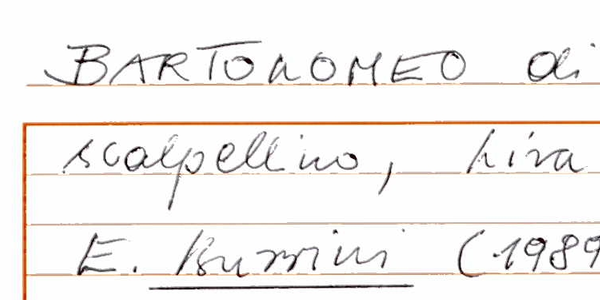 BARTOLOMEO di
scalpellino, Lira
E. Buzzini (1989